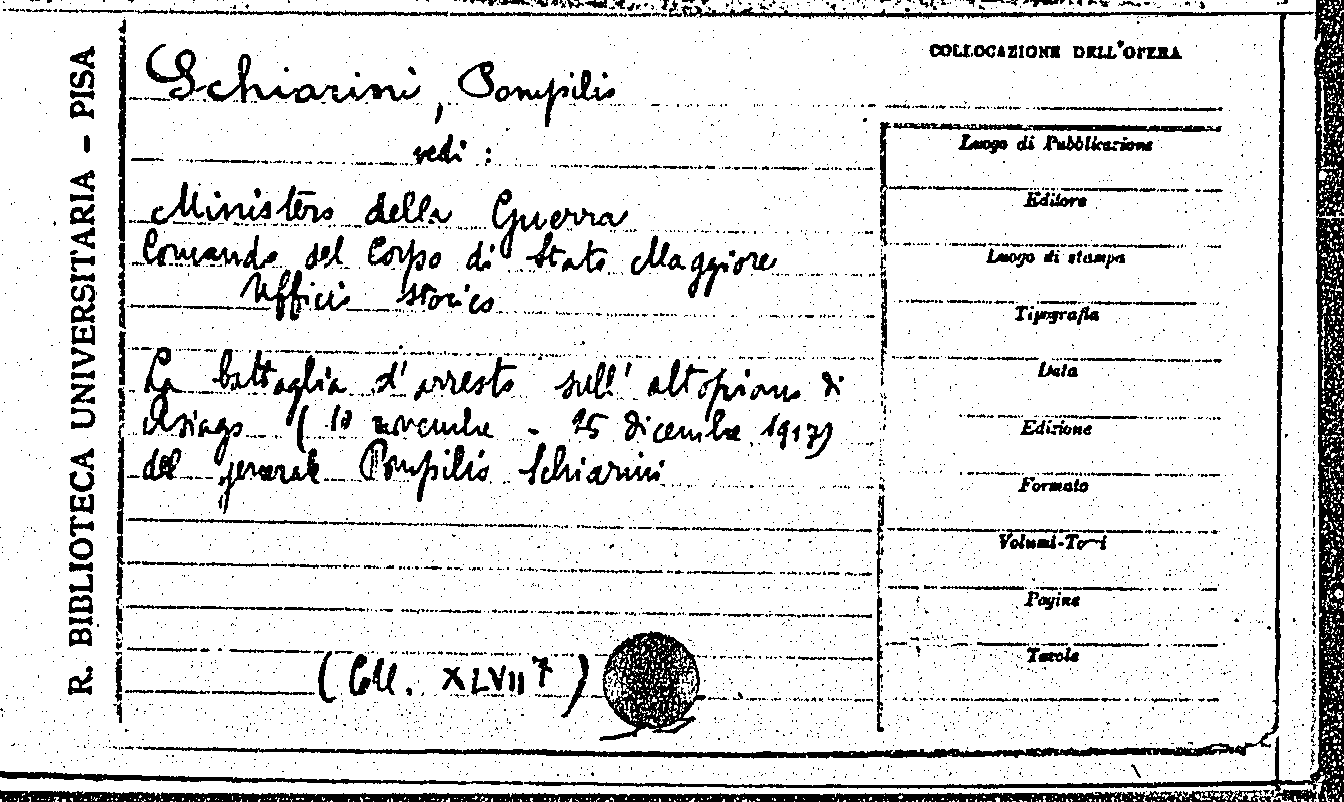 R. BIBLIOTECA UNIVERSITARIA - PISA
Schiarini, Pompilio
vedi :
Ministero della Guerra
Comando del Corpo di Stato Maggiore
Ufficio storico
La battaglia d'arresto sull'altopiano di
Asiago (10 novembre - 25 dicembre 1917)
del generale Pompilio Schiarini
(Coll. XLVII 7)
COLLOCAZIONE DELL'OPERA
Luogo di Pubblicazione
Editore
Luogo di stampa
Tipografia
Data
Edizione
Formato
Volumi-Tomi
Pagine
Tavole